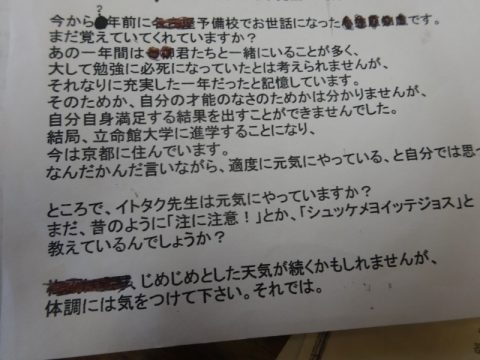 ?
今から 年前に 予備校でお世話になった です。
まだ覚えていてくれていますか?
あの一年間は 君たちと一緒にいることが多く、
大して勉強に必死になっていたとは考えられませんが、
それなりに充実した一年だったと記憶しています。
そのためか、自分の才能のなさのためかは分かりませんが、
自分自身満足する結果を出すことができませんでした。
結局、立命館大学に進学することになり、
今は京都に住んでいます。
なんだかんだ言いながら、適度に元気にやっている、と自分では思っ
ところで、イトタク先生は元気にやっていますか?
まだ、昔のように「注に注意!」とか、「シュッケメヨイッテジョス」と
教えているんでしょうか?
、じめじめとした天気が続くかもしれませんが、
体調には気をつけて下さい。それでは。